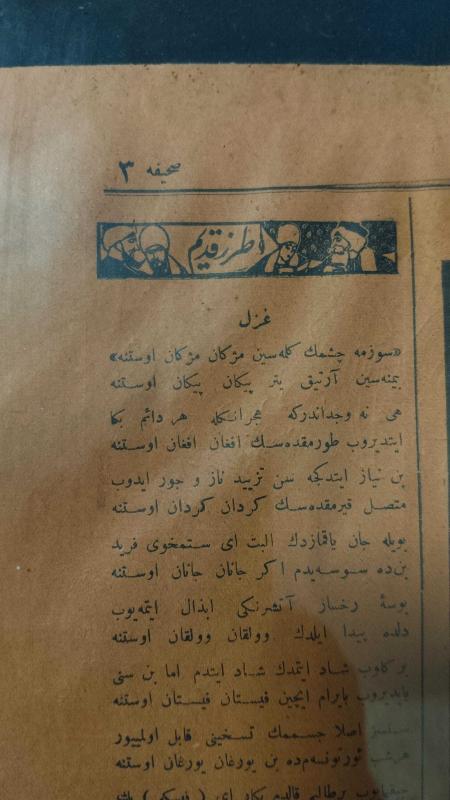 صحیفه ٣
طرز قدیم
غزل
«سوزمه چشمك کلمه‌سین مژکان مژکان اوستنه»
بیمنه‌سین آرتیق یتر پیکان پیکان اوستنه
هی نه وجداندرکه هجرانکله هر دائم بکا
ایتدیروب طورمقده‌سك افغان افغان اوستنه
بن نیاز ایتدکجه سن تزیید ناز و جور ایدوب
متصل قیرمقده‌سك کردان کردان اوستنه
بویله جان یاقمازدك البت ای ستمخوی فرید
بن‌ده سوسه‌یدم اکر جانان جانان اوستنه
بوسهٔ رخسار آتشرنکی ابذال ایتمه‌یوب
دلده پیدا ایلدك وولقان وولقان اوستنه
بر کلوب شاد ایتمدك شاد ایتدم اما بن سنی
یاپدیروب بایرام ایچین فیستان فیستان اوستنه
سنسز اصلا جسممك تسخینی قابل اولمییور
هرشب ئورتونسه‌م‌ده بن یورغان یورغان اوستنه